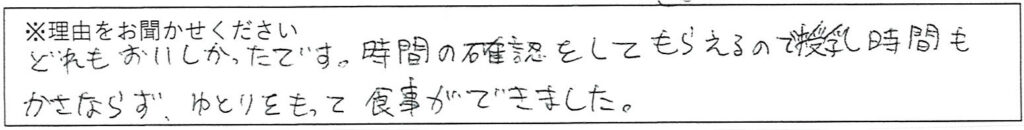 ※理由をお聞かせください
どれもおいしかったです。時間の確認をしてもらえるので授乳時間も
かさならず、ゆとりをもって食事ができました。